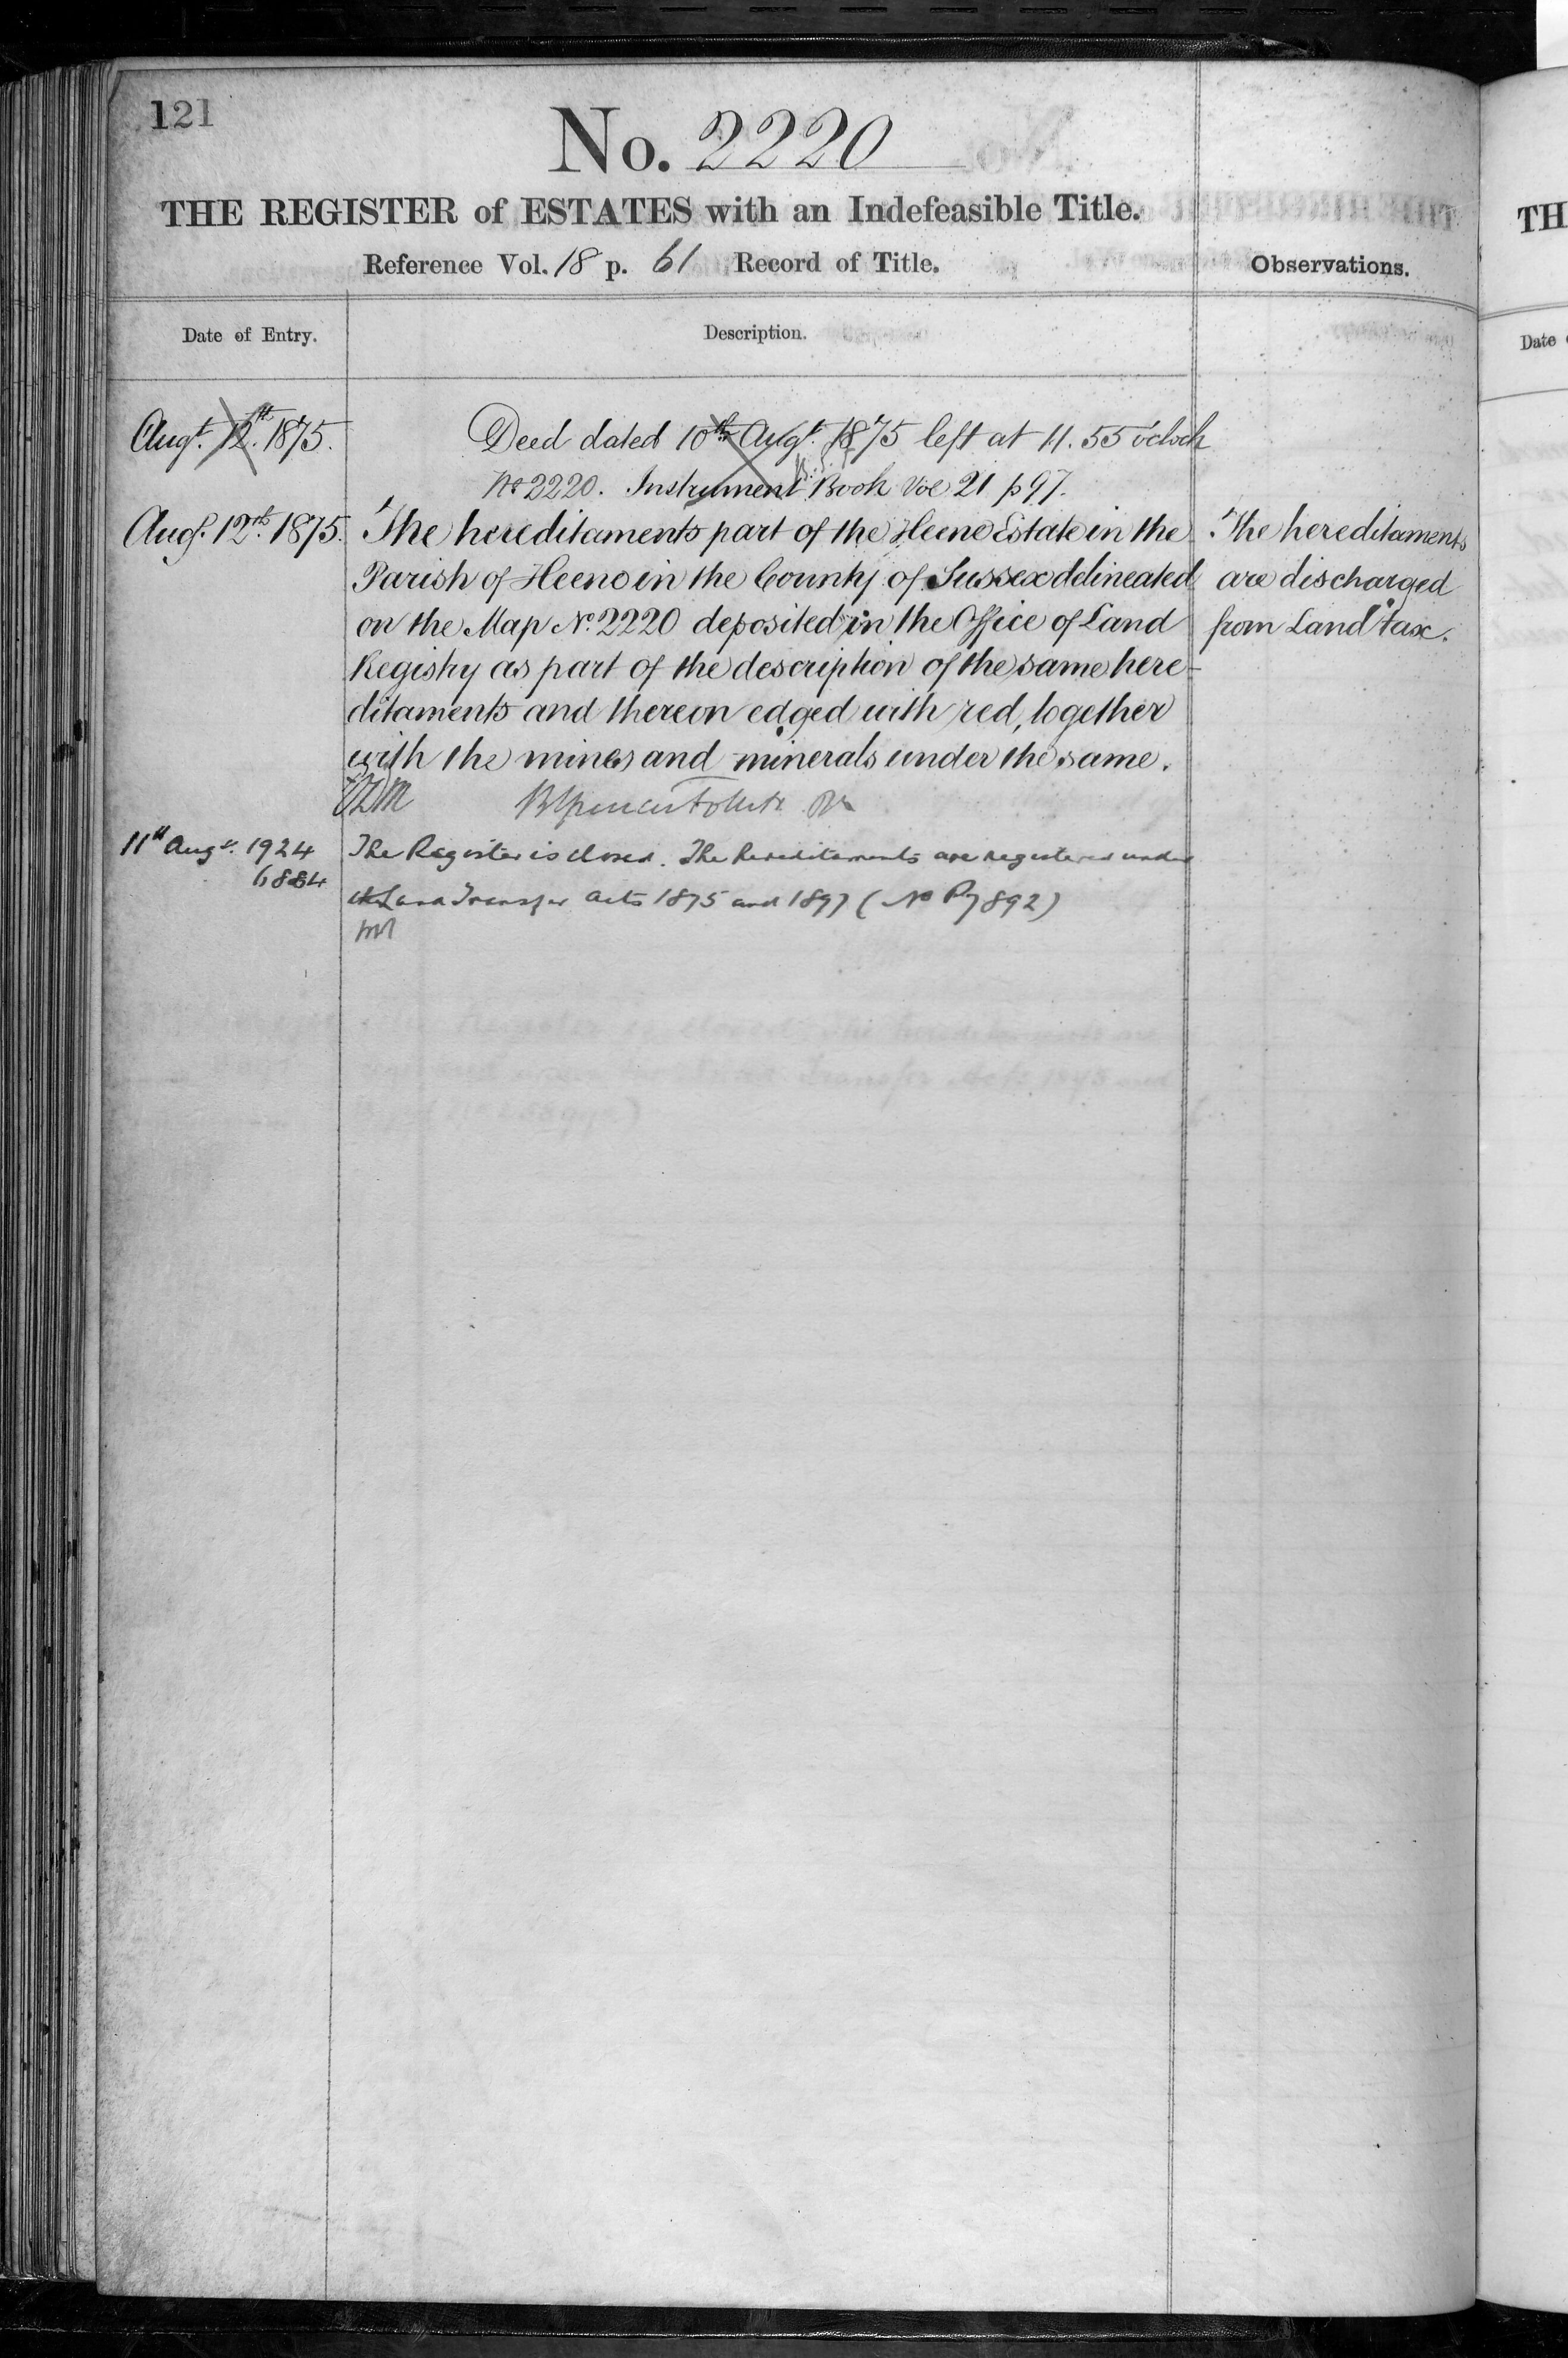 121
No. 2220
THE REGISTER of ESTATES with an Indefeasible Title.
Reference Vol. 18 p. 61 Record of Title.
Observations.
Date of Entry.
Description.
Augt. 12th. 1875.
Deed dated 10th Augt. 1875 left at 11.55 o'clock
No 2220. Instrument Book Vol 21 p 97.
Augt. 12th. 1875.
The hereditaments part of the Heene Estate in the
Parish of Heene in the County of Sussex delineated
on the Map No. 2220 deposited in the Office of Land
Registry as part of the description of the same here-
ditaments and thereon edged with red, together
with the mines and minerals under the same.
The hereditaments
are discharged
from Land tax.
11th Augt. 1924
6884
The Register is closed. The hereditaments are registered under
the Land Transfer Acts 1875 and 1897 (No P7892)
TH
Date